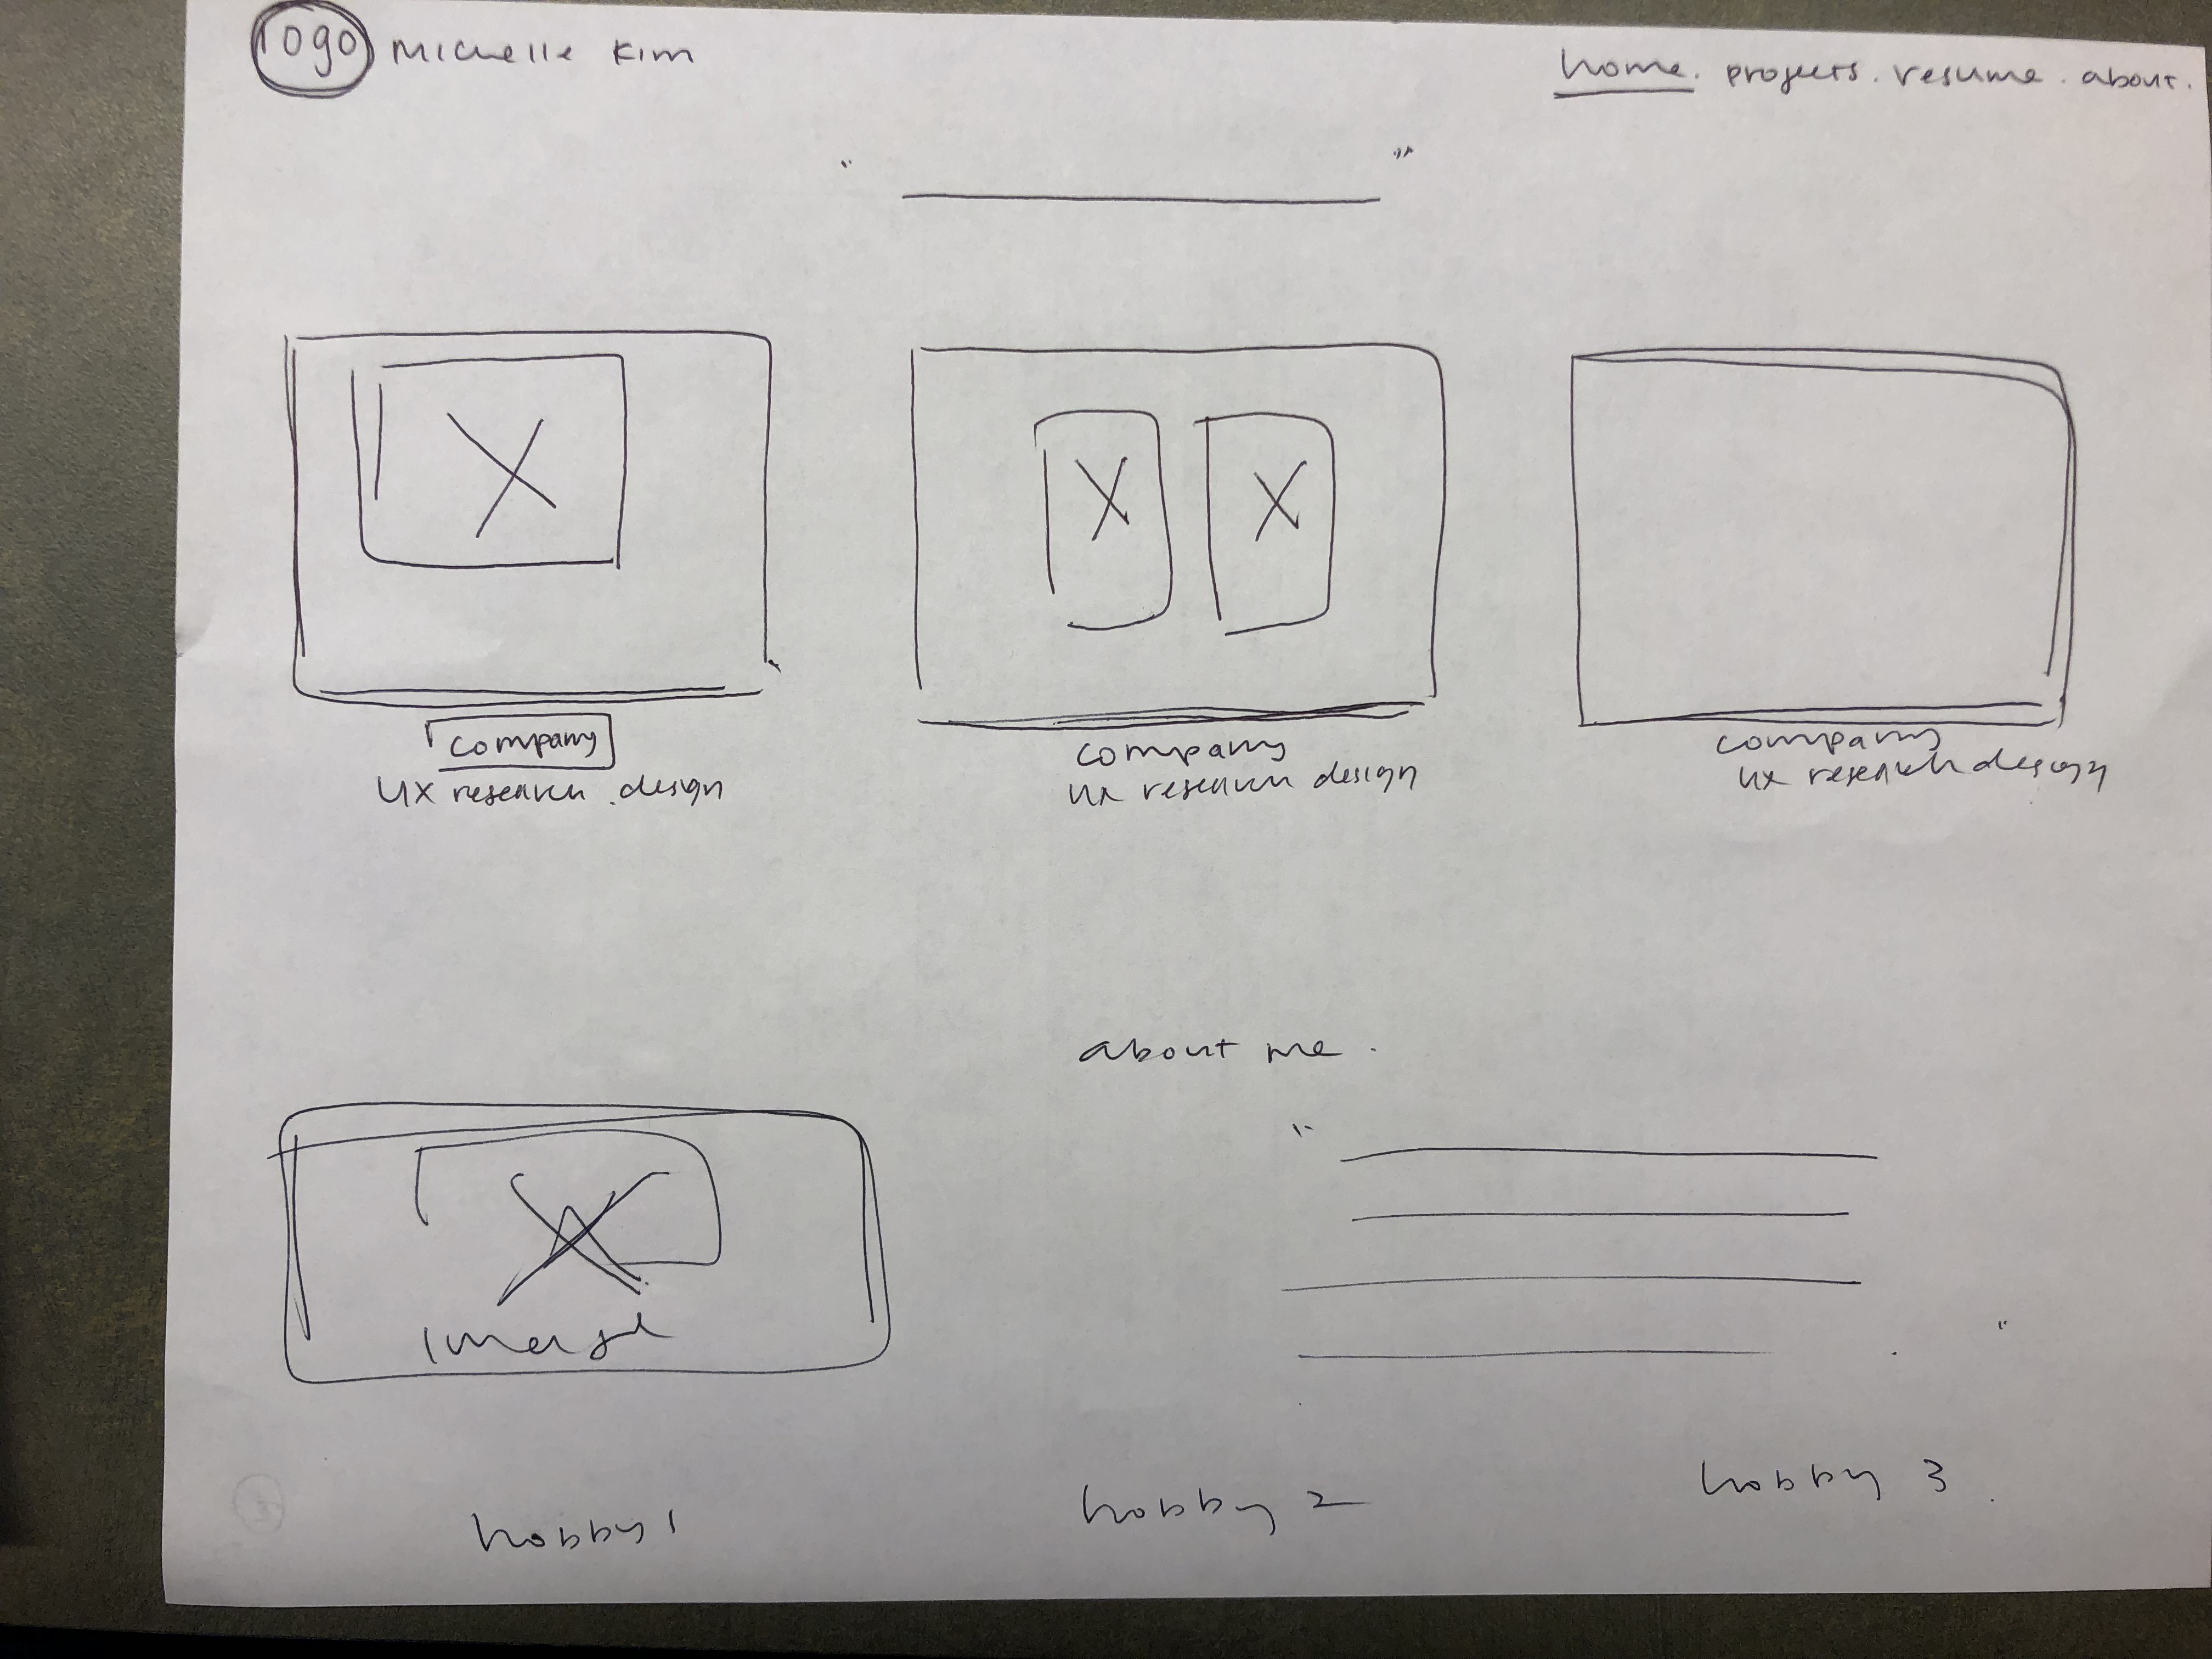 logo Michelle Kim
home. projects. resume. about.
"
"
company
UX research. design
company
ux research design
company
ux research design
about me.
"
"
image
hobby 1
hobby 2
hobby 3